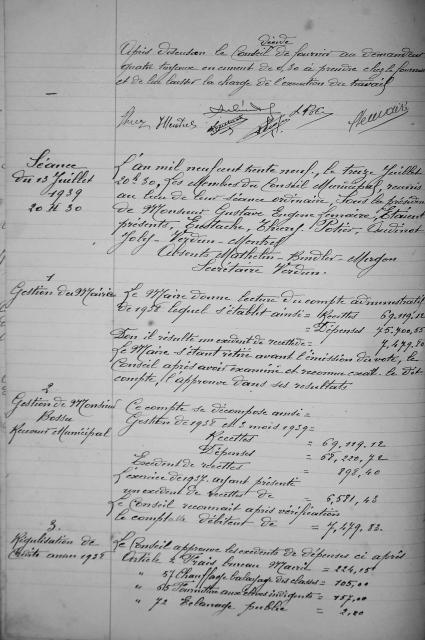 décide
Après discussion le Conseil de fournir au demandeur
quatre tuyaux en ciment de 0,30 à prendre chez le fournisseur
et de lui laisser la charge de l'exécution du travail
Séance
du 13 Juillet
1939
20 H 30
L'an mil neuf cent trente neuf, le treize Juillet
20h 30, Les Membres du Conseil Municipal, réunis
au lieu de leur séance ordinaire, sous la présidence
de Monsieur Gustave Eugène Lemaire, Etaient
présents, Eustache, Thierry, Potier, Oudinot
Joly - Verdun - Menhez
Absents Mathelin - Bindler - Mergon
Secrétaire Verdun.
1
Gestion du Mairie
Le Maire donne lecture du compte administratif
de 1938 lequel s'établit ainsi = Recettes 69,119.12
= Dépenses 75.900,55
D'où il résulte un excédent de recettes = 7,479.80
Le Maire s'étant retiré avant l'émission du vote, le
Conseil après avoir examiné et reconnu exact le dit
compte, l'approuve dans ses résultats
2
Gestion de Monsieur
Bossu
Receveur Municipal
Ce compte se décompose ainsi =
Gestion de 1938 et 3 mois 1939 =
Recettes = 69,119.12
Dépenses = 68,220,72
Excédent de recettes = 898,40
L'exercice de 1937 ayant présenté
un excédent de recettes de = 6,581,43
Le Conseil reconnait après vérification
le comptable débiteur de = 7,479.83.
3.
Régulisation de
Crédits année 1938
Le Conseil approuve les excédents de dépenses ci après
Article 2 Frais bureau Mairie = 224,15
" 57 Chauffage balayage des classes = 705,00
" 58 Fourniture aux élèves indigents = 757,00
" 72 Eclairage public = 2,20